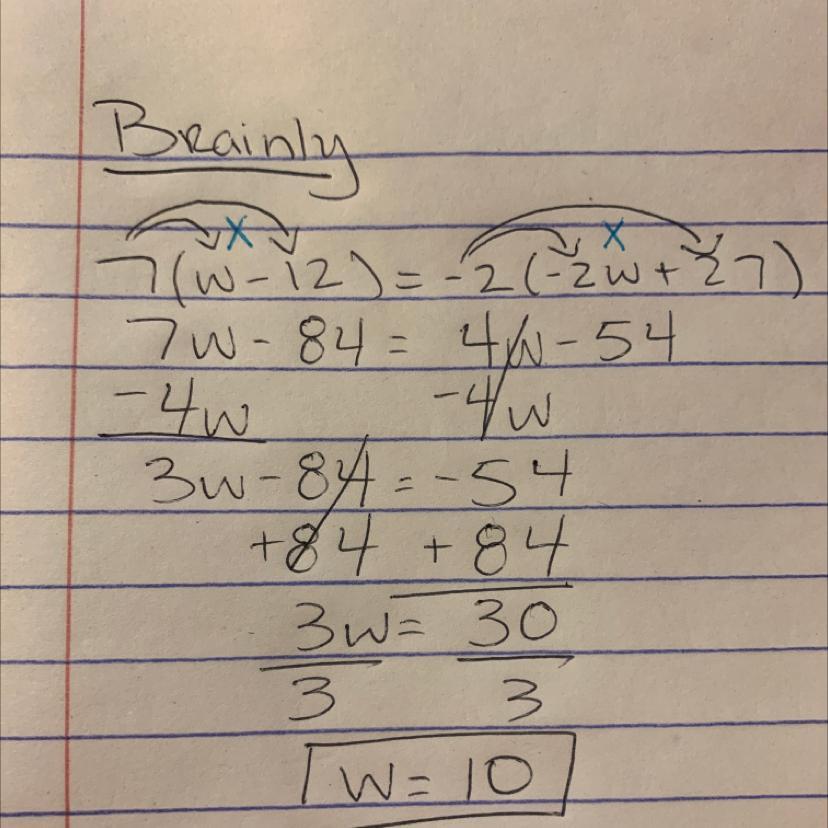 Brainly
x x
7(w-12) = -2(-2w+27)
7w - 84 = 4w - 54
-4w -4w
3w - 84 = -54
+84 +84
3w = 30
3 3
w = 10